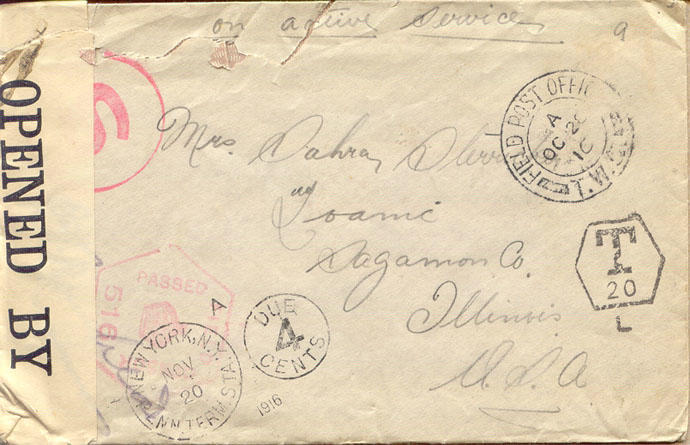 on active Service
9
OPENED BY
S
FIELD POST OFFIC
A
OC 20
16
T.W.
Mrs. Sahra
Loami
Sagamon Co.
Illinois
U.S.A
T
20
L
PASSED
516
A
DUE
4
CENTS
NEW YORK, N.Y.
NOV
20
PENN TERM. STA.
1916